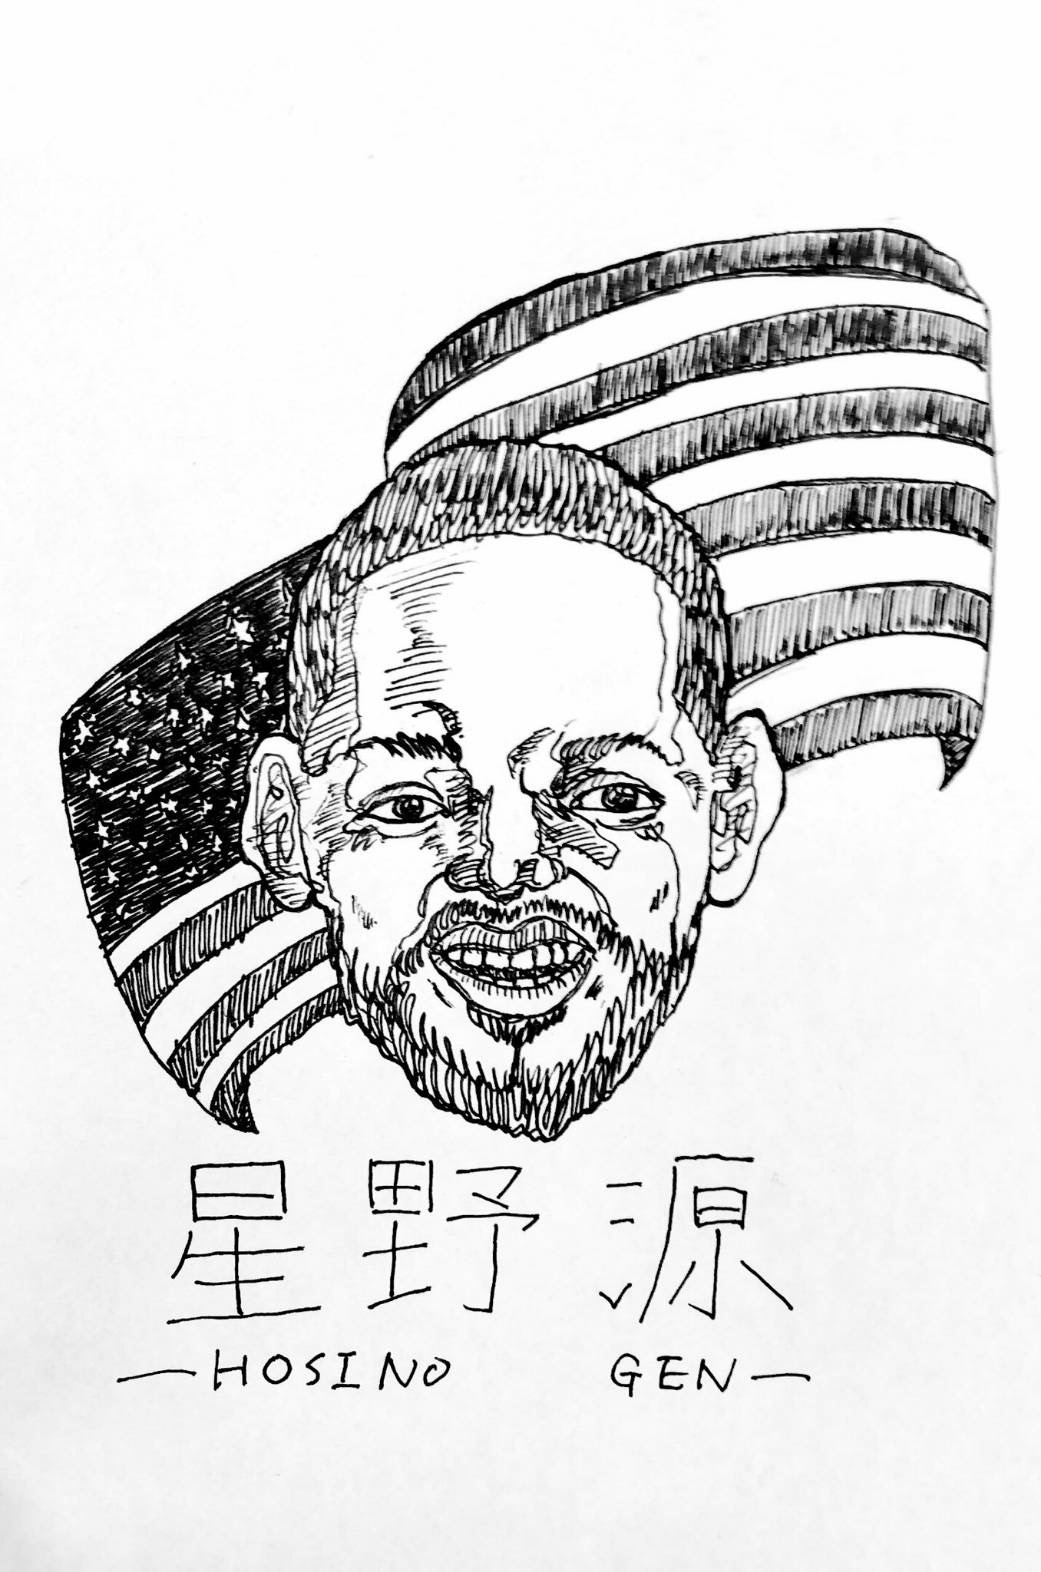 星野 源
—HOSINO GEN—